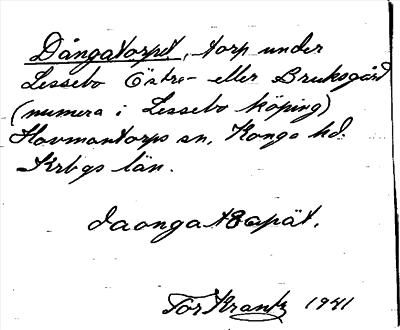 Dångatorpet, torp under
Lessebo Östre- eller Bruksgård
(numera i Lessebo köping)
Hovmantorps sn, Konga hd.
Krbgs län.
Tor Krantz 1941